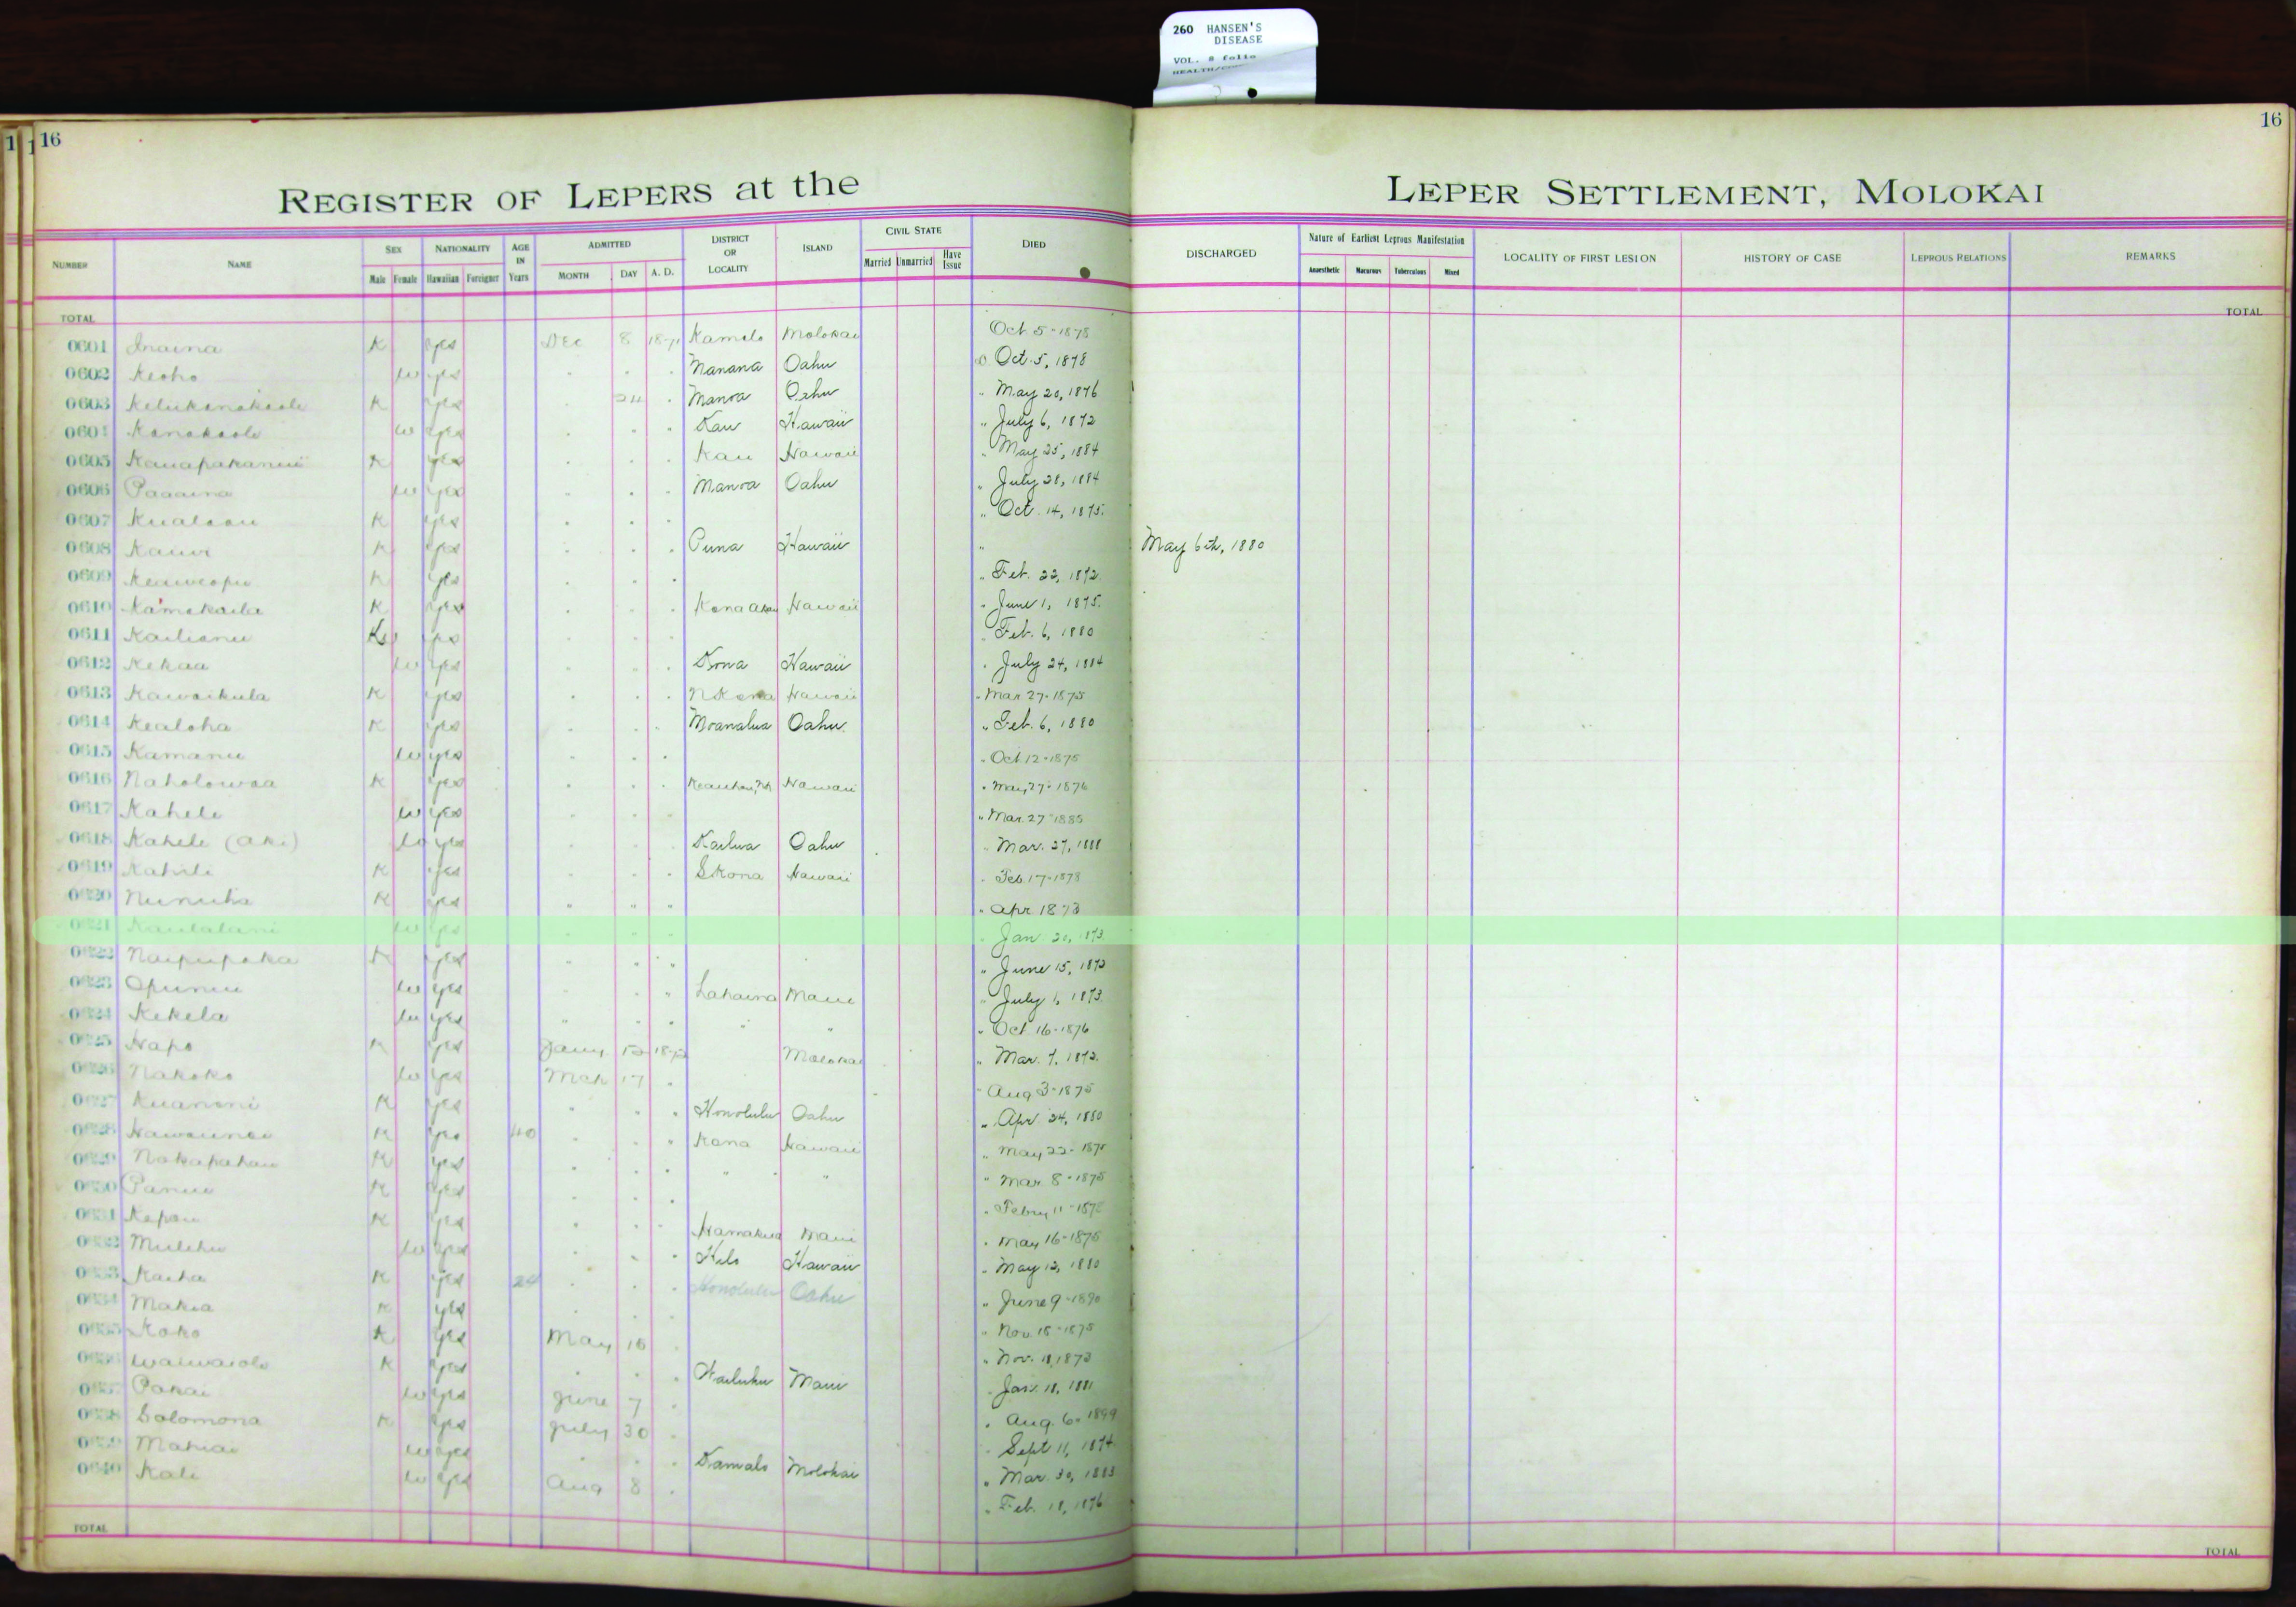 260 HANSEN'S
DISEASE
VOL. 8 folio
16
16
REGISTER OF LEPERS at the
LEPER SETTLEMENT, MOLOKAI
NUMBER NAME SEX Male Female NATIONALITY Hawaiian Foreigner AGE IN Years ADMITTED MONTH DAY A. D. DISTRICT OR LOCALITY ISLAND CIVIL STATE Married Unmarried Have Issue DIED DISCHARGED Nature of Earliest Leprous Manifestation Anaesthetic Macurous Tuberculous Mixed LOCALITY OF FIRST LESION HISTORY OF CASE LEPROUS RELATIONS REMARKS
TOTAL TOTAL
0601 Inaina K yes Dec 8 1871 Kamalo Molokai Oct 5-1878
0602 Keoho w yes Manana Oahu Oct. 5, 1878
0603 K yes 24 Manoa Oahu " May 20, 1876
0604 Kanakaole w yes Kau Hawaii " July 6, 1872
0605 K yes Kau Hawaii " May 25, 1884
0606 Paaaina w yes Manoa Oahu " July 28, 1884
0607 K yes " Oct. 14, 1875.
0608 Kauwi K yes Puna Hawaii " May 6th, 1880
0609 Keaweopu K yes " Feb. 22, 1872.
0610 Kamakaila K yes Kona Akau Hawaii " June 1, 1875.
0611 Kailianu yes Feb. 6, 1880
0612 Kekaa w yes Kona Hawaii " July 24, 1884
0613 Kawaikula K yes N Kona Hawaii " Mar 27-1875
0614 Kealoha K yes Moanalua Oahu " Feb. 6, 1880
0615 Kamanu w yes " Oct 12-1875
0616 Naholowaa K yes Hawaii " May 27-1876
0617 Kahele w yes " Mar. 27-1885
0618 Kahele (aki) w yes Kailua Oahu " Mar. 27, 1888
0619 Kahili K yes S Kona Hawaii " Feb. 17-1878
0620 Nunuha K yes " " " " Apr 1873
0621 Kaulalani w yes Jan 20, 1873
0622 Naipupaka K yes " June 15, 1873
0623 Opunui w yes Lahaina Maui " July 1, 1873.
0624 Kekela w yes " " " Oct 16-1876
0625 Hapo K yes Jany 12 1872 Molokai " Mar. 7, 1872.
0626 Nakoko w yes Mch 17 " Aug 3-1875
0627 Kuanoni K yes Honolulu Oahu " Apr. 24, 1880
0628 K yes 40 Kona Hawaii " May 22-1875
0629 Nakapahau K yes " " " Mar 8-1875
0630 Panui K yes " Febry 11-1872
0631 Kapau K yes Hamakua Maui " May 16-1875
0632 Mulehu w yes Hilo Hawaii " May 12, 1880
0633 Kaiha K yes 24 Honolulu Oahu " June 9-1890
0634 Makia K yes " Nov. 18-1875
0635 Koko K yes May 10 " Nov. 11, 1873
0636 Waiwaiole K yes Wailuku Maui Jan. 18, 1881
0637 Pakai w yes June 7 " Aug. 6-1899
0638 Solomona K yes July 30 " Sept 11, 1874
0639 Mahiai w yes Kamalo Molokai " Mar. 30, 1883
0640 Kali w yes Aug 8 " Feb. 18, 1876
TOTAL TOTAL